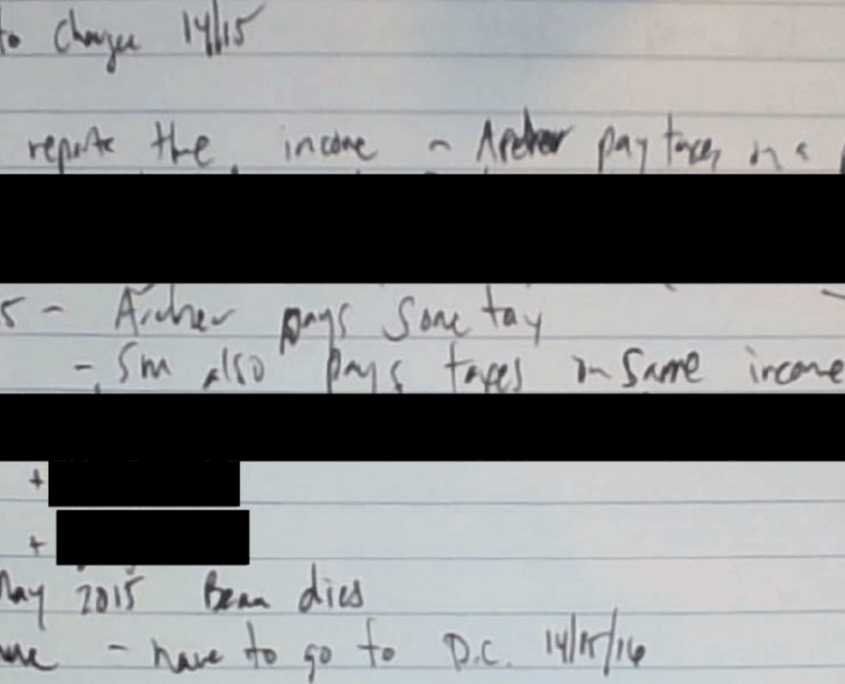 to charge 14/15
reports the income - Archer pay taxes on a
5 - Archer pays some tax
- SM also pays taxes on same income
+
+
May 2015 Beau dies
- have to go to D.C. 14/15/16